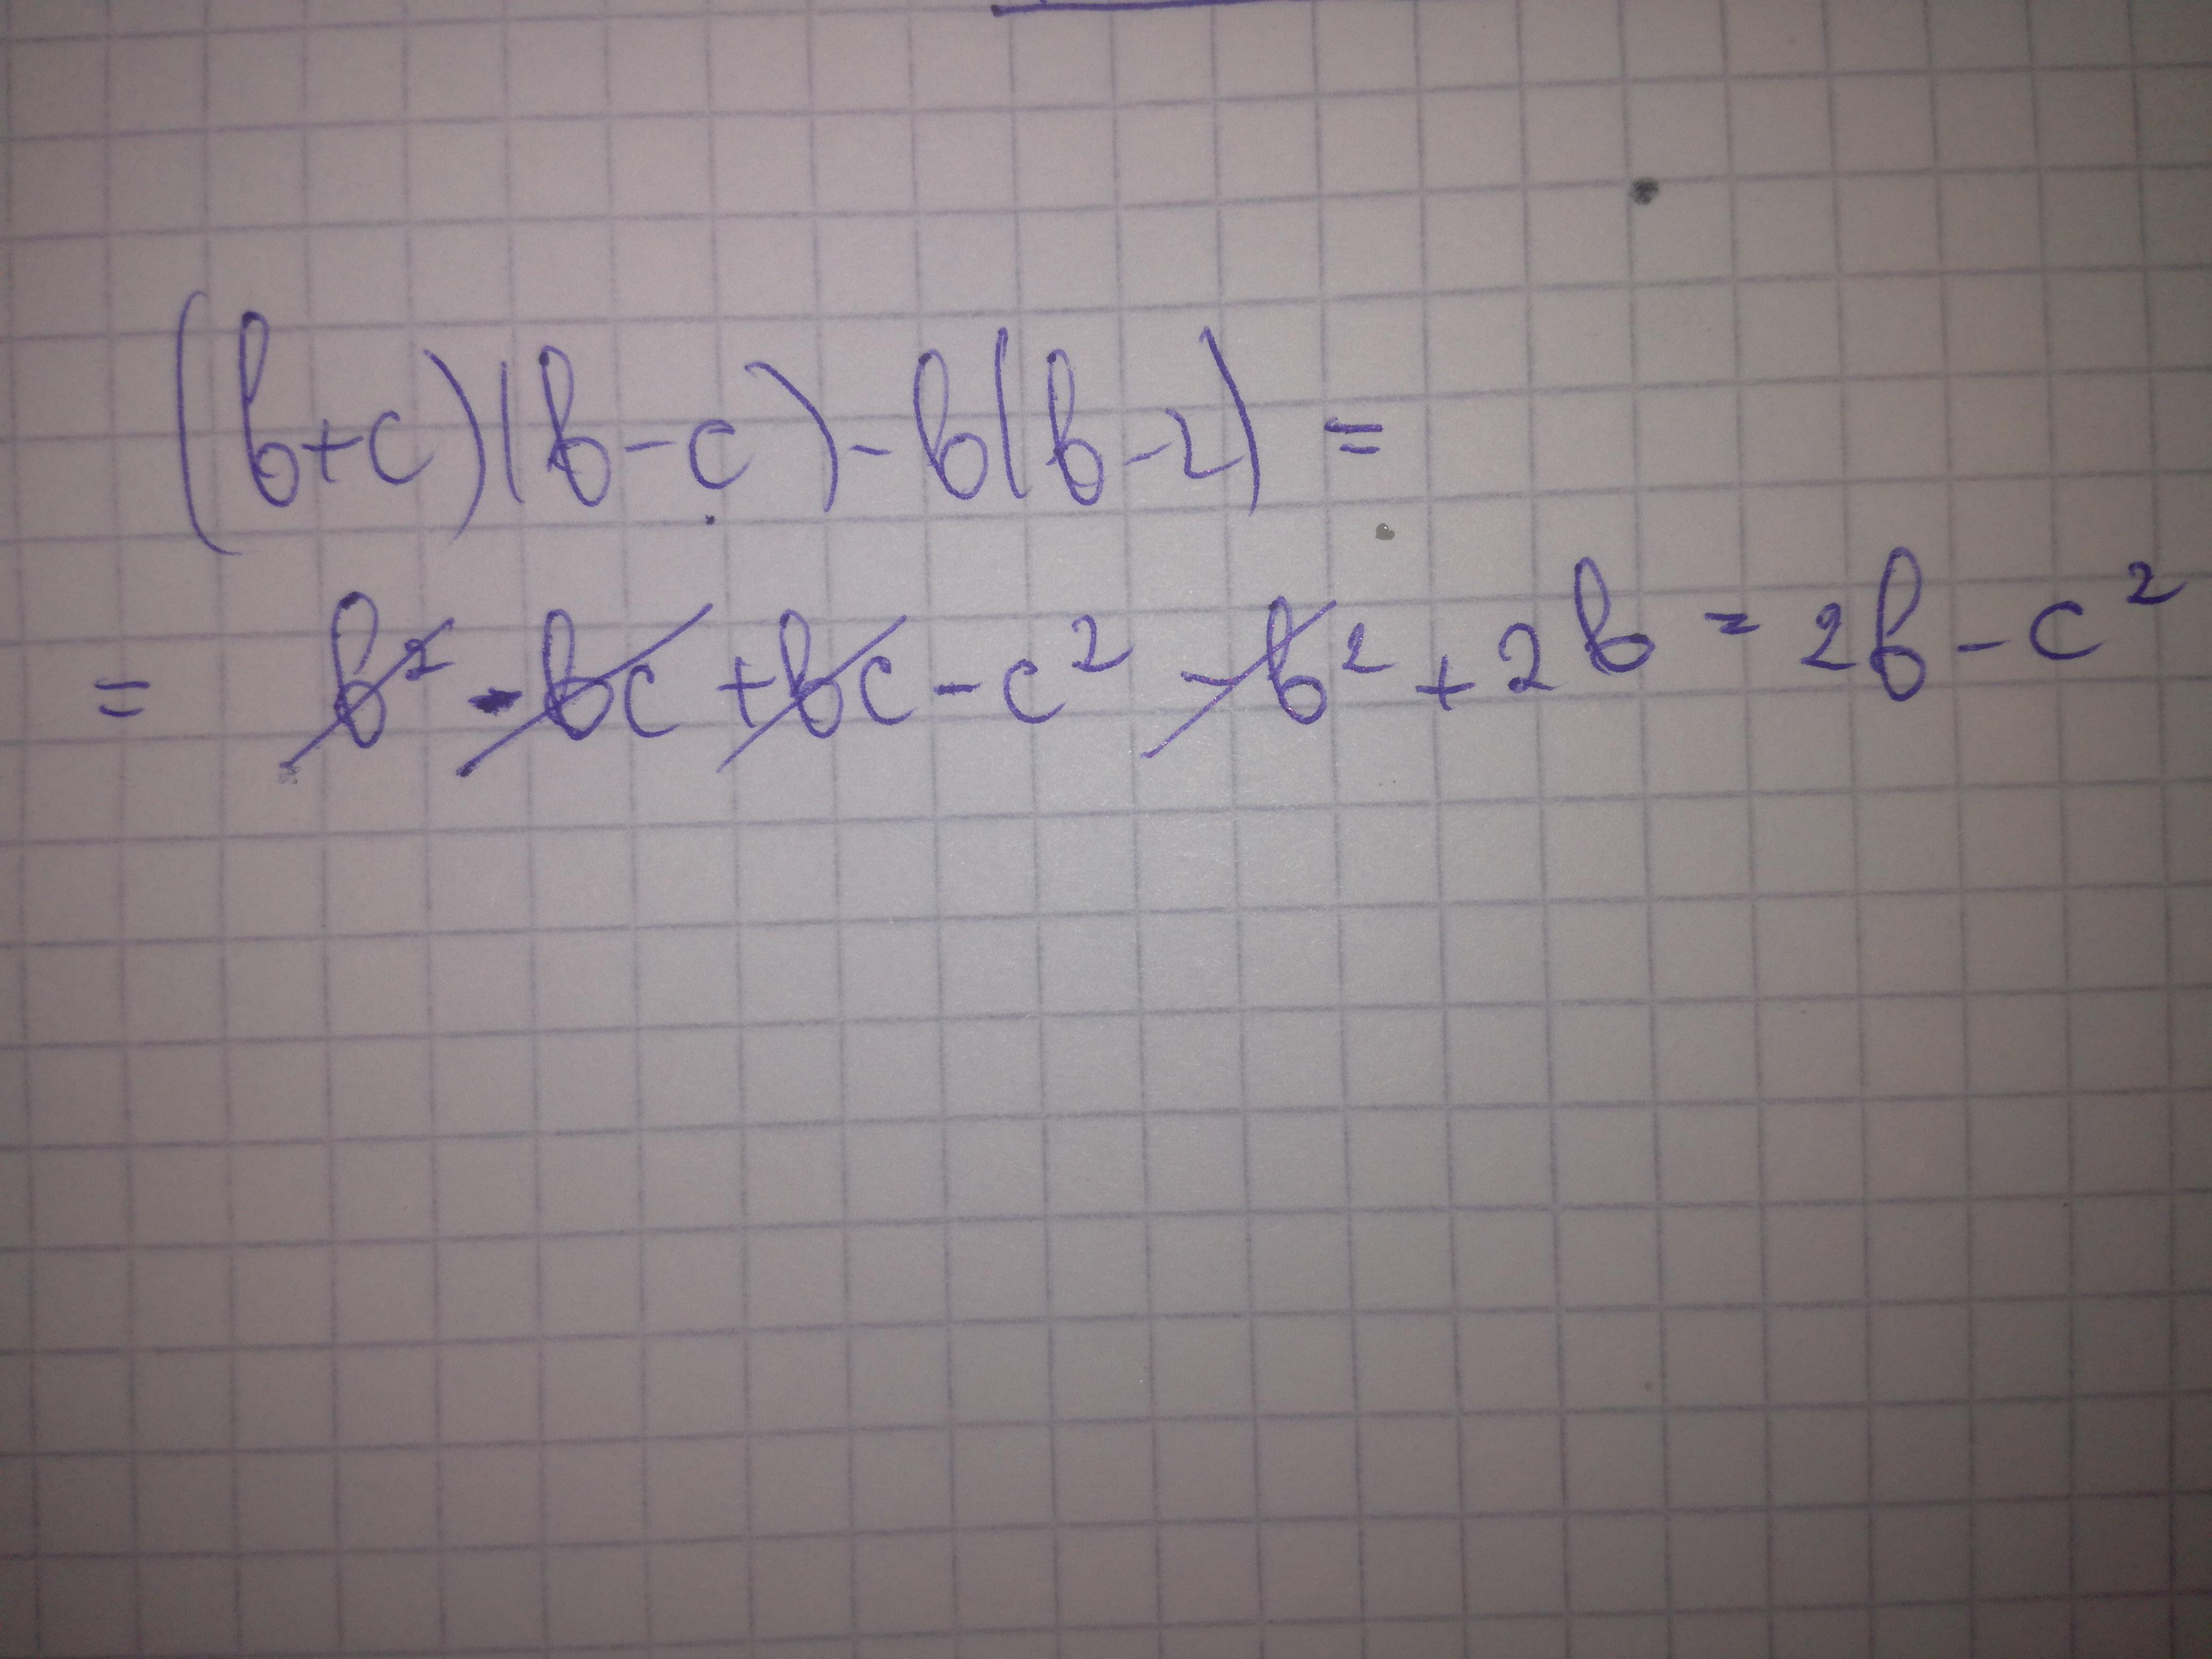 (b+c)(b-c)-b(b-2)=
= b² - bc + bc - c² - b² + 2b = 2b - c²